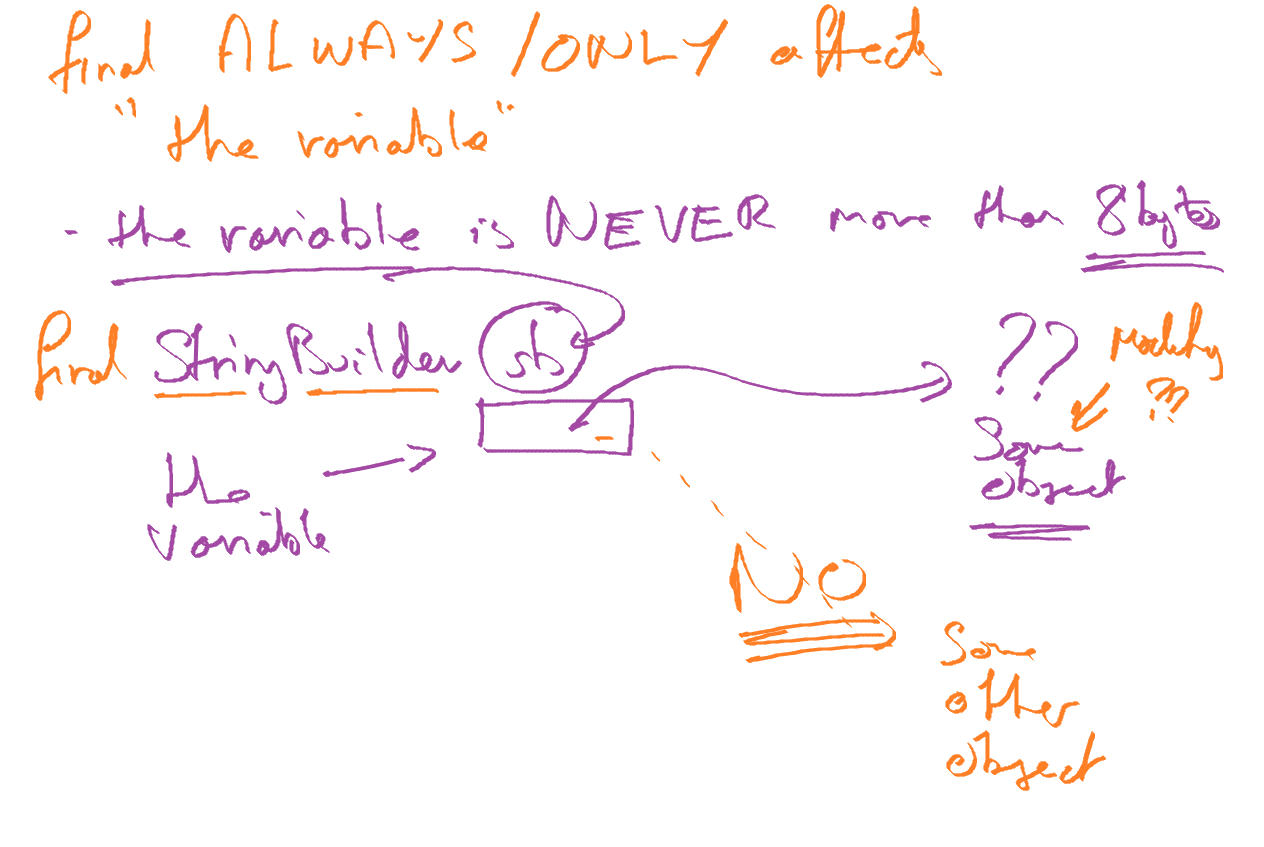 final ALWAYS / ONLY affects
"the variable"
- the variable is NEVER more than 8 bytes
final StringBuilder sb
?? Modify
??
Some
object
the
variable
NO
Some
other
object